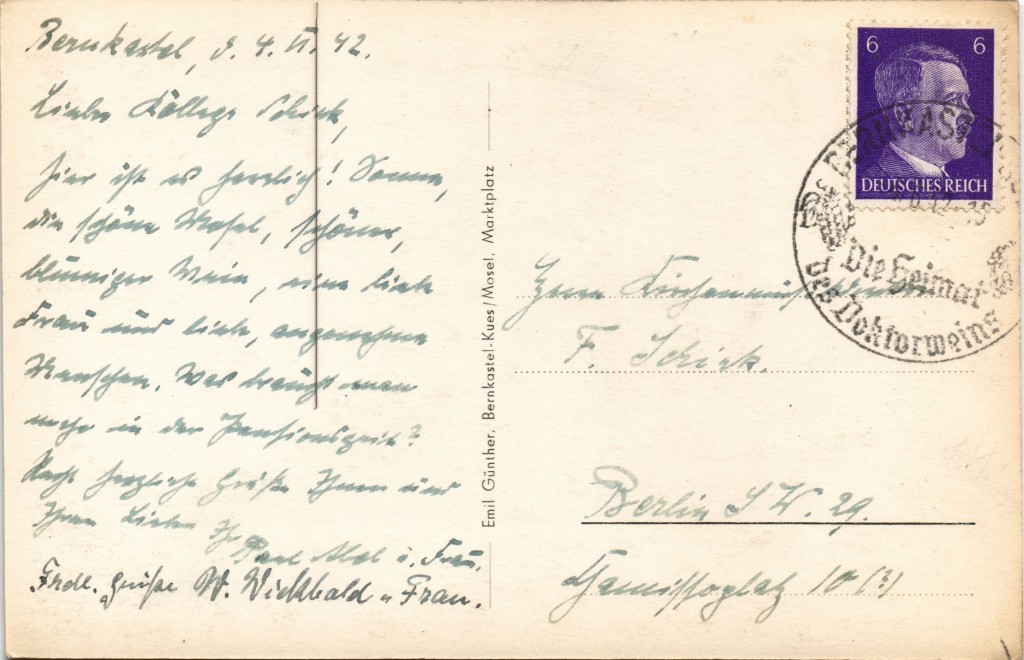 Bernkastel, d. 4. VI. 42.
Lieber Kollege Schick,
hier ist es herrlich! Sonne,
die schöne Mosel, schöner,
blumiger Wein, eine liebe
Frau und liebe, angenehme
Menschen. Was braucht man
mehr in der Pensionszeit?
Recht herzliche Grüße Ihnen und
Ihren Lieben Ihr
Paul Abel u. Frau.
Frdl. Grüße W. Wickbald u Frau.
Emil Günther, Bernkastel-Kues/Mosel, Marktplatz
6 6
DEUTSCHES REICH
Die Heimat
des Doktorweins
Herrn
F. Schick.
Berlin S.W. 29.
Chamissoplatz 10 (?)